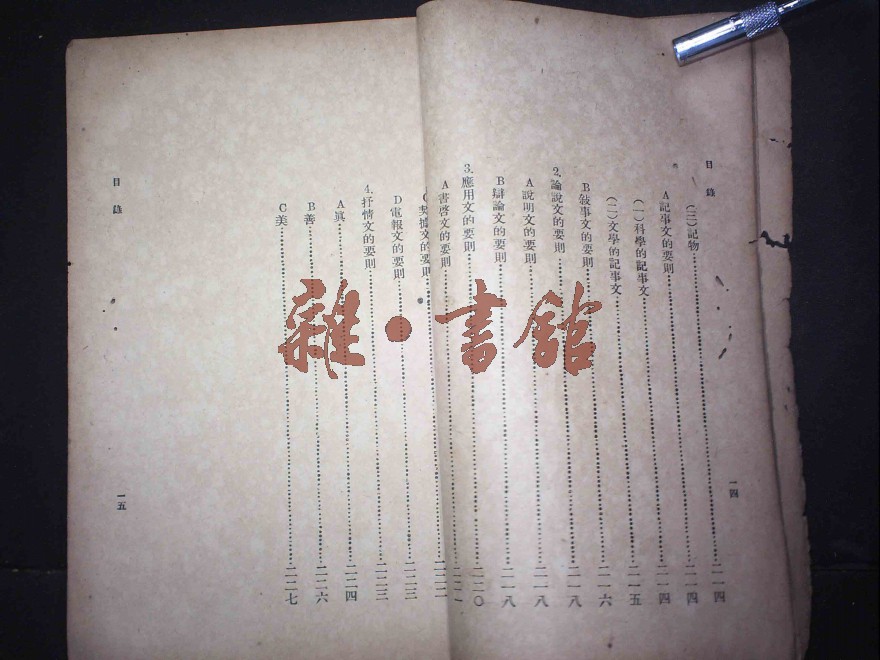 目錄
(三)記物……二一四
A記事文的要則……二一四
(一)科學的記事文……二一四
(二)文學的記事文……二一五
B敍事文的要則……二一六
2.論說文的要則……二一八
A說明文的要則……二一八
B辯論文的要則……二一八
3.應用文的要則……二二〇
A書啓文的要則……二二一
一四
C契據文的要則……二二二
D電報文的要則……二二三
4.抒情文的要則……二二三
A眞……二二四
B善……二二六
C美……二二七
目錄
一五
雜●書館